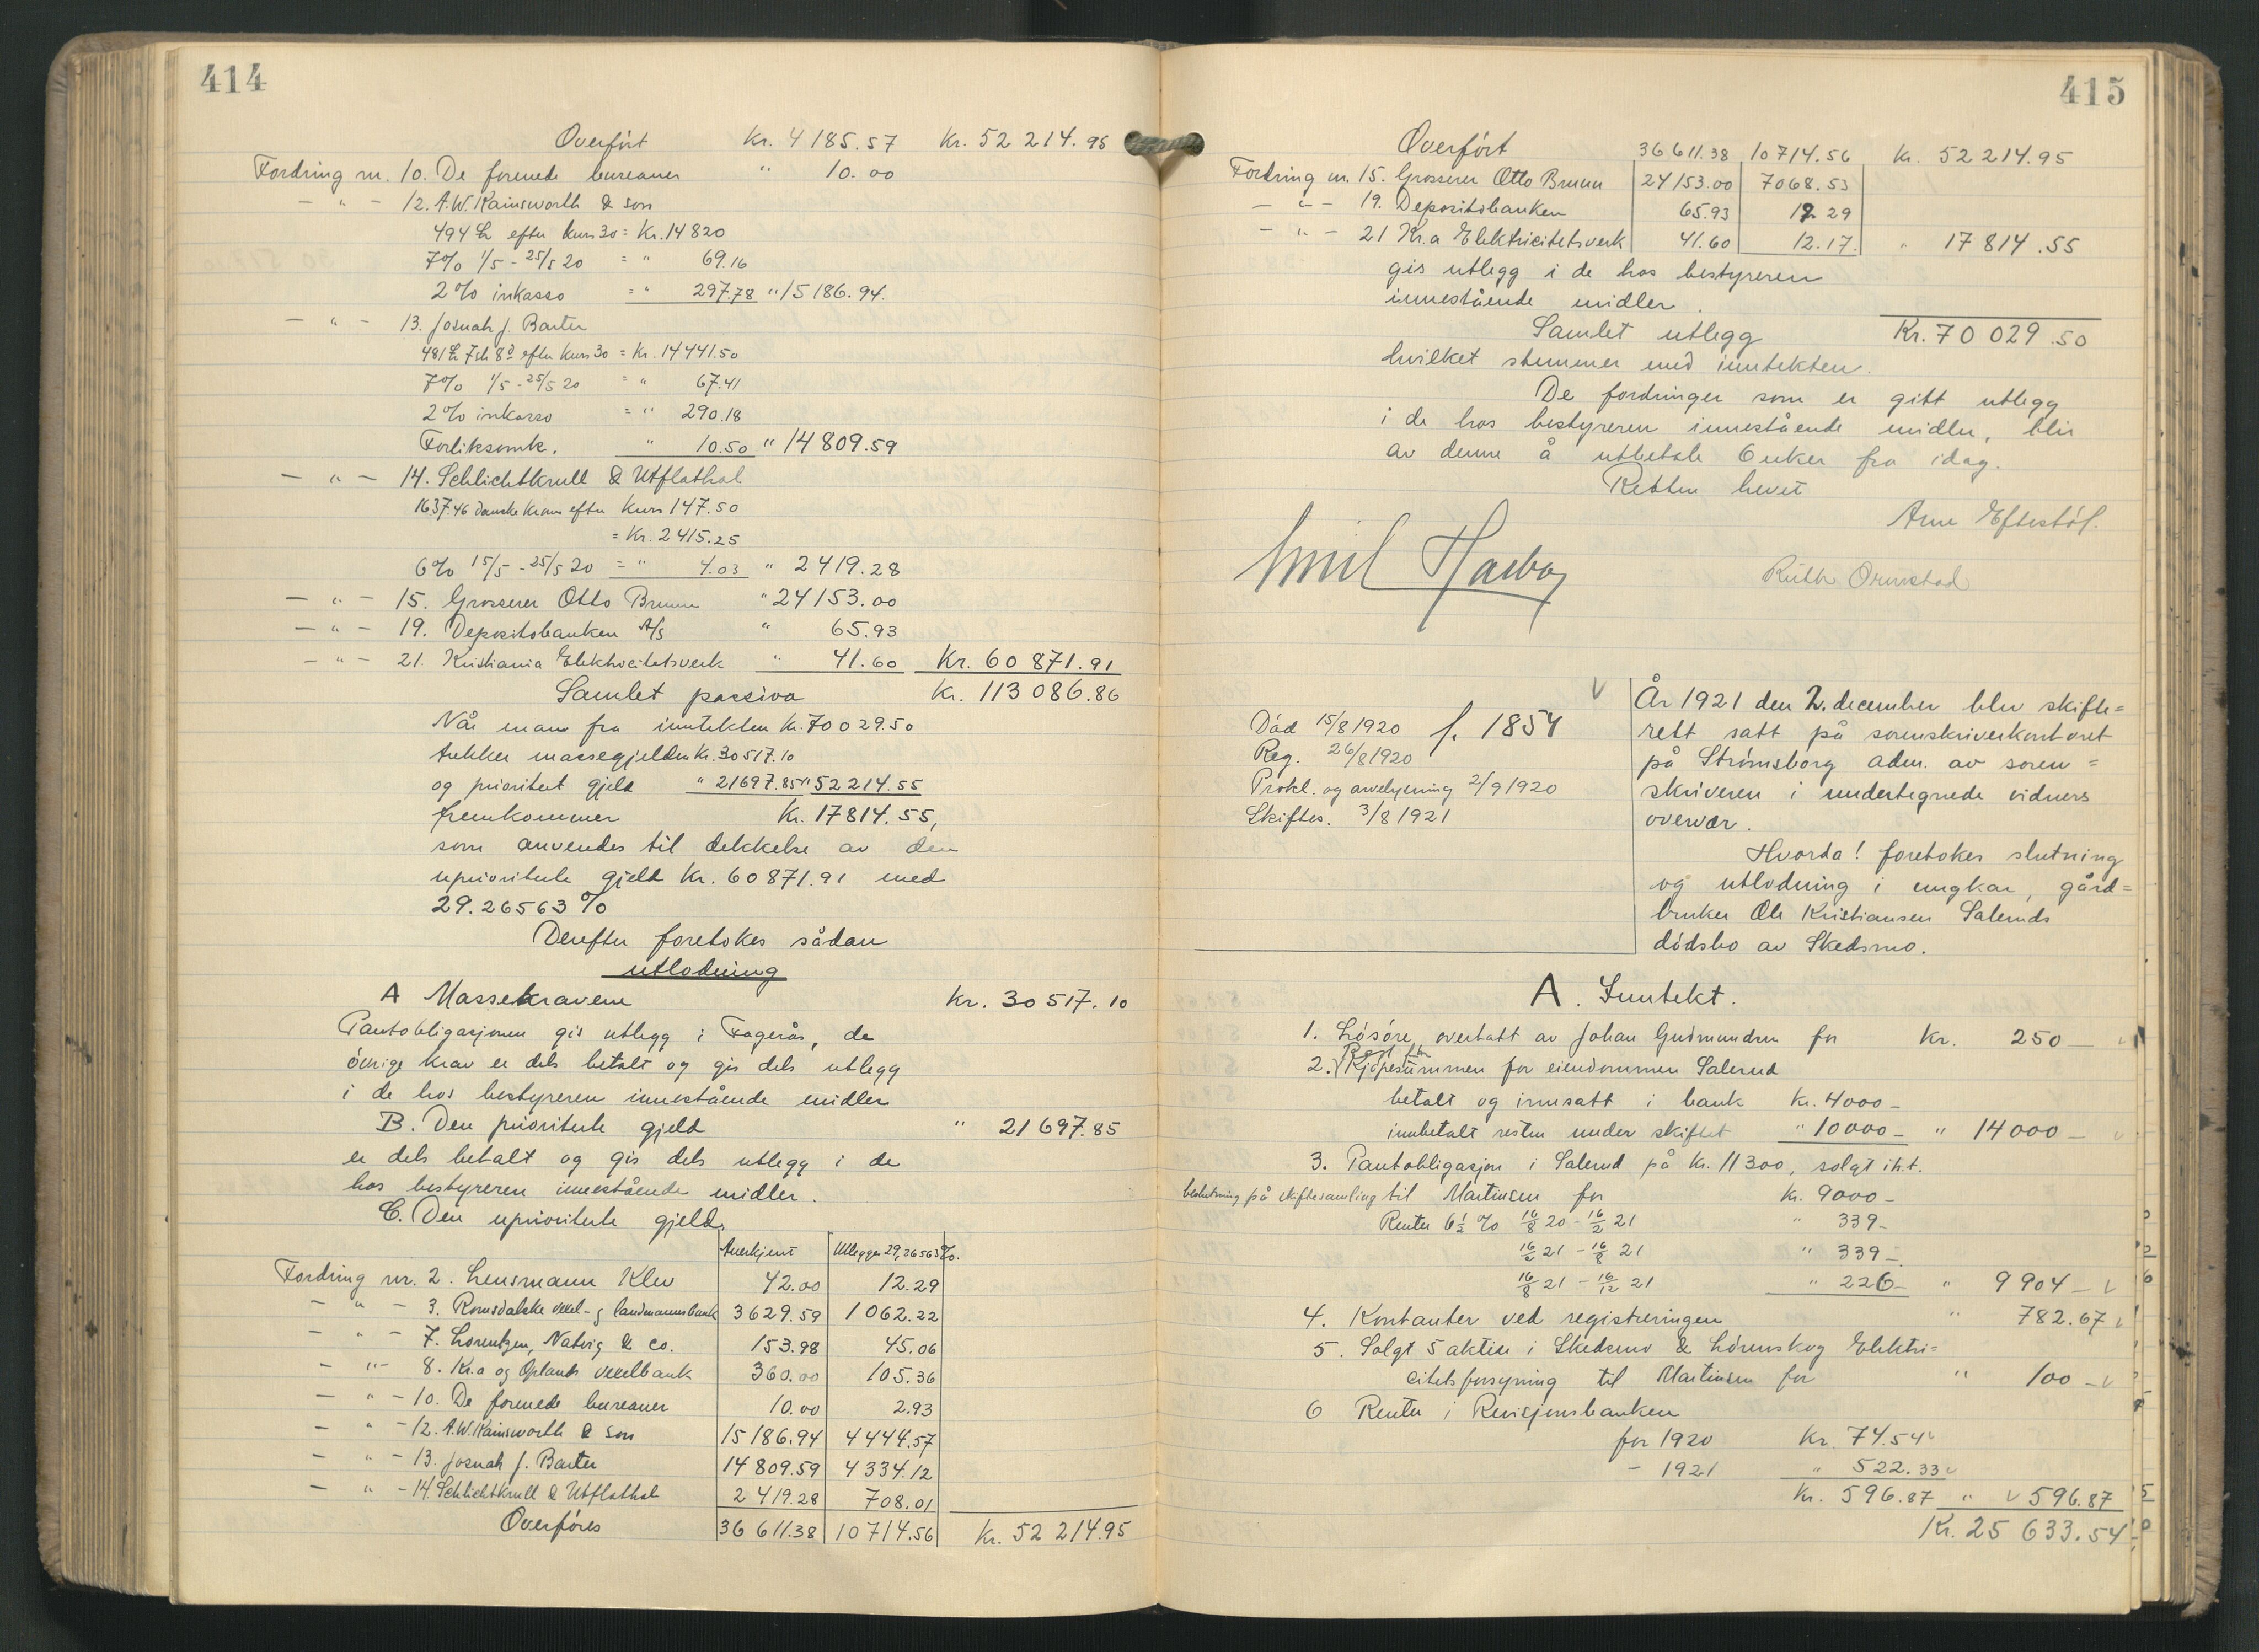 414
Overført Kr. 4185.57 Kr. 52 214.95
Fordring nr. 10. De forenede bureauer " 10.00
— " — 12. A.W. Kainsworth & son
494 £ efter kurs 30 = Kr. 14820
7% 1/5 - 25/5 20 = " 69.16
2% inkasso = " 297.78 " 15186.94.
— " — 13. Josuah J. Barter
481 £ 7sh 8d efter kurs 30 = Kr. 14441.50
7% 1/5 - 25/5 20 = " 67.41
2% inkasso = " 290.18
Forliksomk. " 10.50 " 14809.59
— " — 14. Schlichtkrull & Utflathal
1637.46 danske kroner efter kurs 147.50
= Kr. 2415.25
6% 15/5 - 25/5 20 = " 4.03 " 2419.28
— " — 15. Grosserer Otto Bruun " 24153.00
— " — 19. Depositobanken A/S " 65.93
— " — 21. Kristiania Elektricitetsverk " 41.60 Kr. 60 871.91
Samlet passiva Kr. 113 086.86
Når man fra inntekten Kr. 70029.50
trekker massegjelden Kr. 30517.10
og prioritert gjeld " 21697.85 " 52214.55
fremkommer Kr. 17814.55,
som anvendes til dekkelse av den
uprioriterte gjeld Kr. 60871.91 med
29.26563 %
Derefter foretokes sådan
utlodning
A Massekravene Kr. 30517.10
Pantobligasjonen gis utlegg i Fagerås, de
øvrige krav er dels betalt og gis dels utlegg
i de hos bestyreren innestående midler
B. Den prioriterte gjeld " 21697.85
er dels betalt og gis dels utlegg i de
hos bestyreren innestående midler.
C. Den uprioriterte gjeld.
Anerkjent Utlegges 29,26563%.
Fordring nr. 2. Lensmann Klev 42.00 12.29
— " — 3. Romsdalske vexel- og landmannsbank 3629.59 1062.22
— " — 7. Lorentzen, Natvig & Co. 153.98 45.06
— " — 8. Kr.a og Oplands vexelbank 360.00 105.36
— " — 10. De forenede bureauer 10.00 2.93
— " — 12. A.W. Kainsworth & son 15186.94 4444.57
— " — 13. Josuah J. Barter 14809.59 4334.12
— " — 14. Schlichtkrull & Utflathal 2419.28 708.01
Overføres 36611.38 10714.56 Kr. 52 214.95
415
Overført 36611.38 10714.56 Kr. 52214.95
Fordring nr. 15. Grosserer Otto Bruun 24153.00 7068.53
— " — 19. Depositobanken 65.93 19.29
— " — 21 Kr.a Elektricitetsverk 41.60 12.17. " 17814.55
gis utlegg i de hos bestyreren
innestående midler.
Samlet utlegg Kr. 70 029.50
hvilket stemmer med inntekten.
De fordringer som er gitt utlegg
i de hos bestyreren innestående midler, blir
av denne å utbetale 6 uker fra idag.
Retten hevet
Arne Eftestøl.
Emil
Ruth Ormstad
Død 15/8 1920 f. 1854
Reg. 26/8 1920
Prokl. og arvelysning 2/9 1920
Skiftes. 3/8 1921
År 1921 den 2. december blev skifte=
rett satt på sorenskriverkontoret
på Strømsborg adm. av soren=
skriveren i undertegnede vidners
overvær.
Hvorda! foretokes slutning
og utlodning i ungkar, gård=
bruker Ole Kristiansen Saleruds
dødsbo av Skedsmo.
A. Inntekt.
1. Løsøre, overtatt av Johan Gudmundsen for Kr. 250 —
2. Rest for Kjøpesummen for eiendommen Salerud
betalt og innsatt i bank Kr. 4000 —
innbetalt resten under skiftet " 10000 — " 14000 —
3. Pantobligasjon i Salerud på Kr. 11300, solgt iht.
beslutning på skiftesamling til Martinsen for Kr. 9000 —
Renter 6 1/2 % 16/8 20 - 16/2 21 " 339 —
16/2 21 - 16/8 21 " 339 —
16/8 21 - 16/12 21 " 226 — " 9904 —
4. Kontanter ved registreringen " 782.67
5. Solgt 5 aktier i Skedsmo & Lørenskog Elektri=
citetsforsyning til Martinsen for " 100 —
6 Renter i Revisjonsbanken
for 1920 Kr. 74.54
— 1921 " 522.33
Kr. 596.87 " 596.87
Kr. 25 633.54